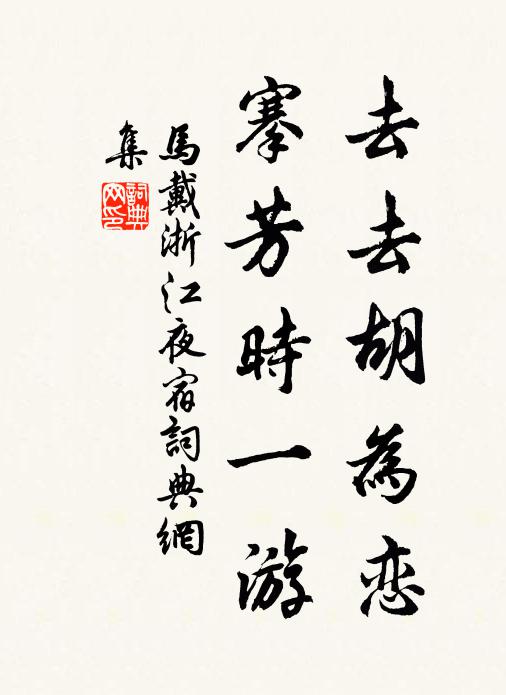 去去胡為恋
搴芳時一游
馬戴浙江夜宿詞典網
集
詞典
网印